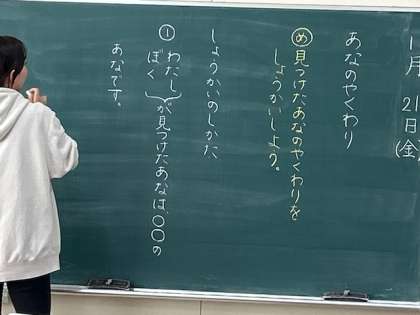 月21日(金)
あなのやくわり
め 見つけたあなのやくわりを
しょうかいしよう。
しょうかいのしかた
① わたし
ぼく
が見つけたあなは、○○の
あなです。